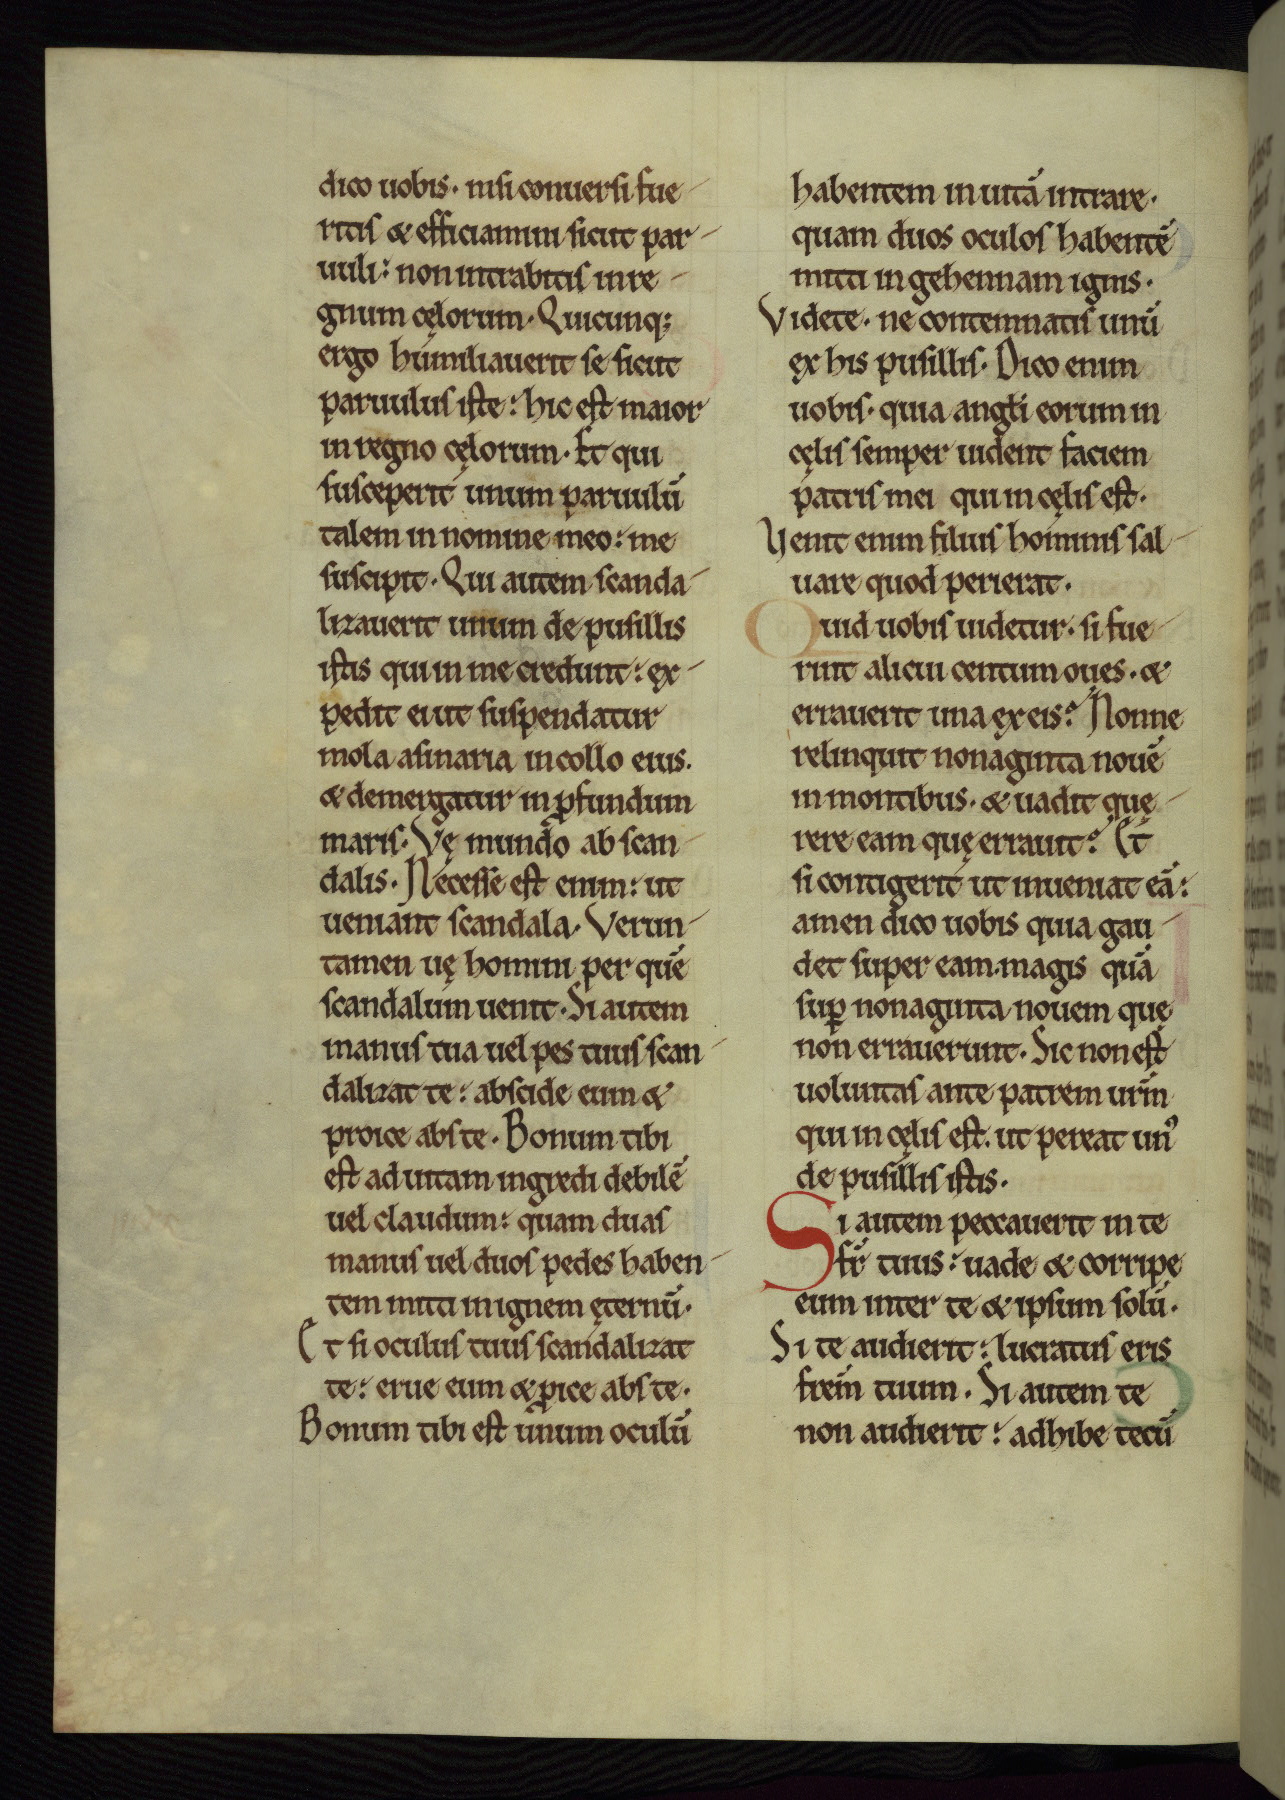 dico uobis. nisi conuersi fue-
ritis & efficiamini sicut par-
uuli: non intrabitis in re-
gnum cęlorum. Quicunq;
ergo humiliauerit se sicut
paruulus iste: hic est maior
in regno cęlorum. Et qui
susceperit unum paruulū
talem in nomine meo: me
suscipit. Qui autem scanda-
lizauerit unum de pusillis
istis qui in me credunt: ex-
pedit ei ut suspendatur
mola asinaria in collo eius.
& demergatur in ꝓfundum
maris. Vę mundo ab scan-
dalis. Necesse est enim: ut
ueniant scandala. Verun-
tamen uę homini per quē
scandalum uenit. Si autem
manus tua uel pes tuus scan-
dalizat te: abscide eum &
proice abs te. Bonum tibi
est ad uitam ingredi debilē
uel claudum: quam duas
manus uel duos pedes haben-
tem mitti in ignem ęternū.
Et si oculus tuus scandalizat
te: erue eum & ꝓice abs te.
Bonum tibi est unum oculū
habentem in uitā intrare.
quam duos oculos habentē
mitti in gehennam ignis.
Videte. ne contemnatis unū
ex his pusillis. Dico enim
uobis. quia angłi eorum in
cęlis semper uident faciem
patris mei qui in cęlis est.
Venit enim filius hominis sal-
uare quod perierat.
Quid uobis uidetur. si fue-
rint alicui centum oues. &
errauerit una ex eis? Nonne
relinquit nonaginta nouē
in montibus. & uadit quę-
rere eam quę errauit? Et
si contigerit ut inueniat eā:
amen dico uobis quia gau-
det super eam magis quā
suꝑ nonaginta nouem quę
non errauerunt. Sic non est
uoluntas ante patrem urm̄
qui in cęlis est. ut pereat unꝰ
de pusillis istis.
Si autem peccauerit in te
fr̄ tuus: uade & corripe
eum inter te & ipsum solū.
Si te audierit: lucratus eris
frem̄ tuum. Si autem te
non audierit: adhibe tecū